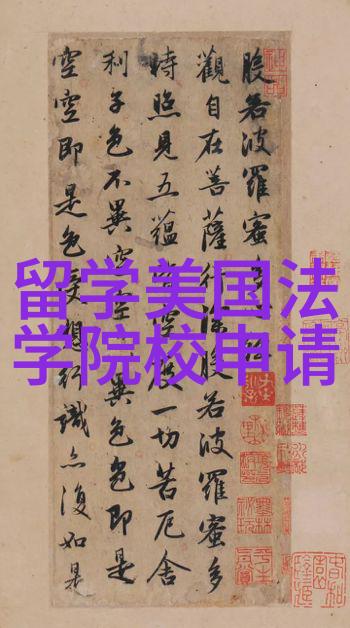 留学美国法
学院校申请
般若波羅蜜多
觀自在菩薩行深般若波羅蜜多
時照見五蘊皆空度一切苦厄舍
利子色不異空空不異色色即是
空空即是色受想行識亦復如是